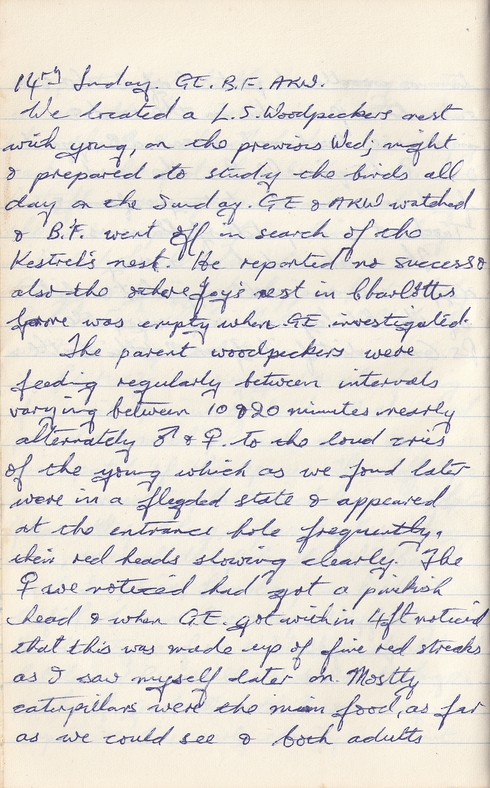 14TH Sunday. GE. B.F. AKW.
We located a L.S. Woodpeckers nest
with young, on the previous Wed; night
& prepared to study the birds all
day on the Sunday. GE & AKW watched
& B.F. went off in search of the
Kestrel's nest. He reported no success &
also the other Jay's nest in Charlottes
was empty when GE investigated.
The parent woodpeckers were
feeding regularly between intervals
varying between 10 & 20 minutes nearly
alternately ♂ & ♀ to the loud cries
of the young which as we found later
were in a flegded state & appeared
at the entrance hole frequently,
their red heads slowing clearly. The
♀ we noticed had got a pinkish
head & when G.E. got within 4ft noticed
that this was made up of fine red streaks
as I saw myself later on. Mostly
caterpillars were the main food, as far
as we could see & both adults